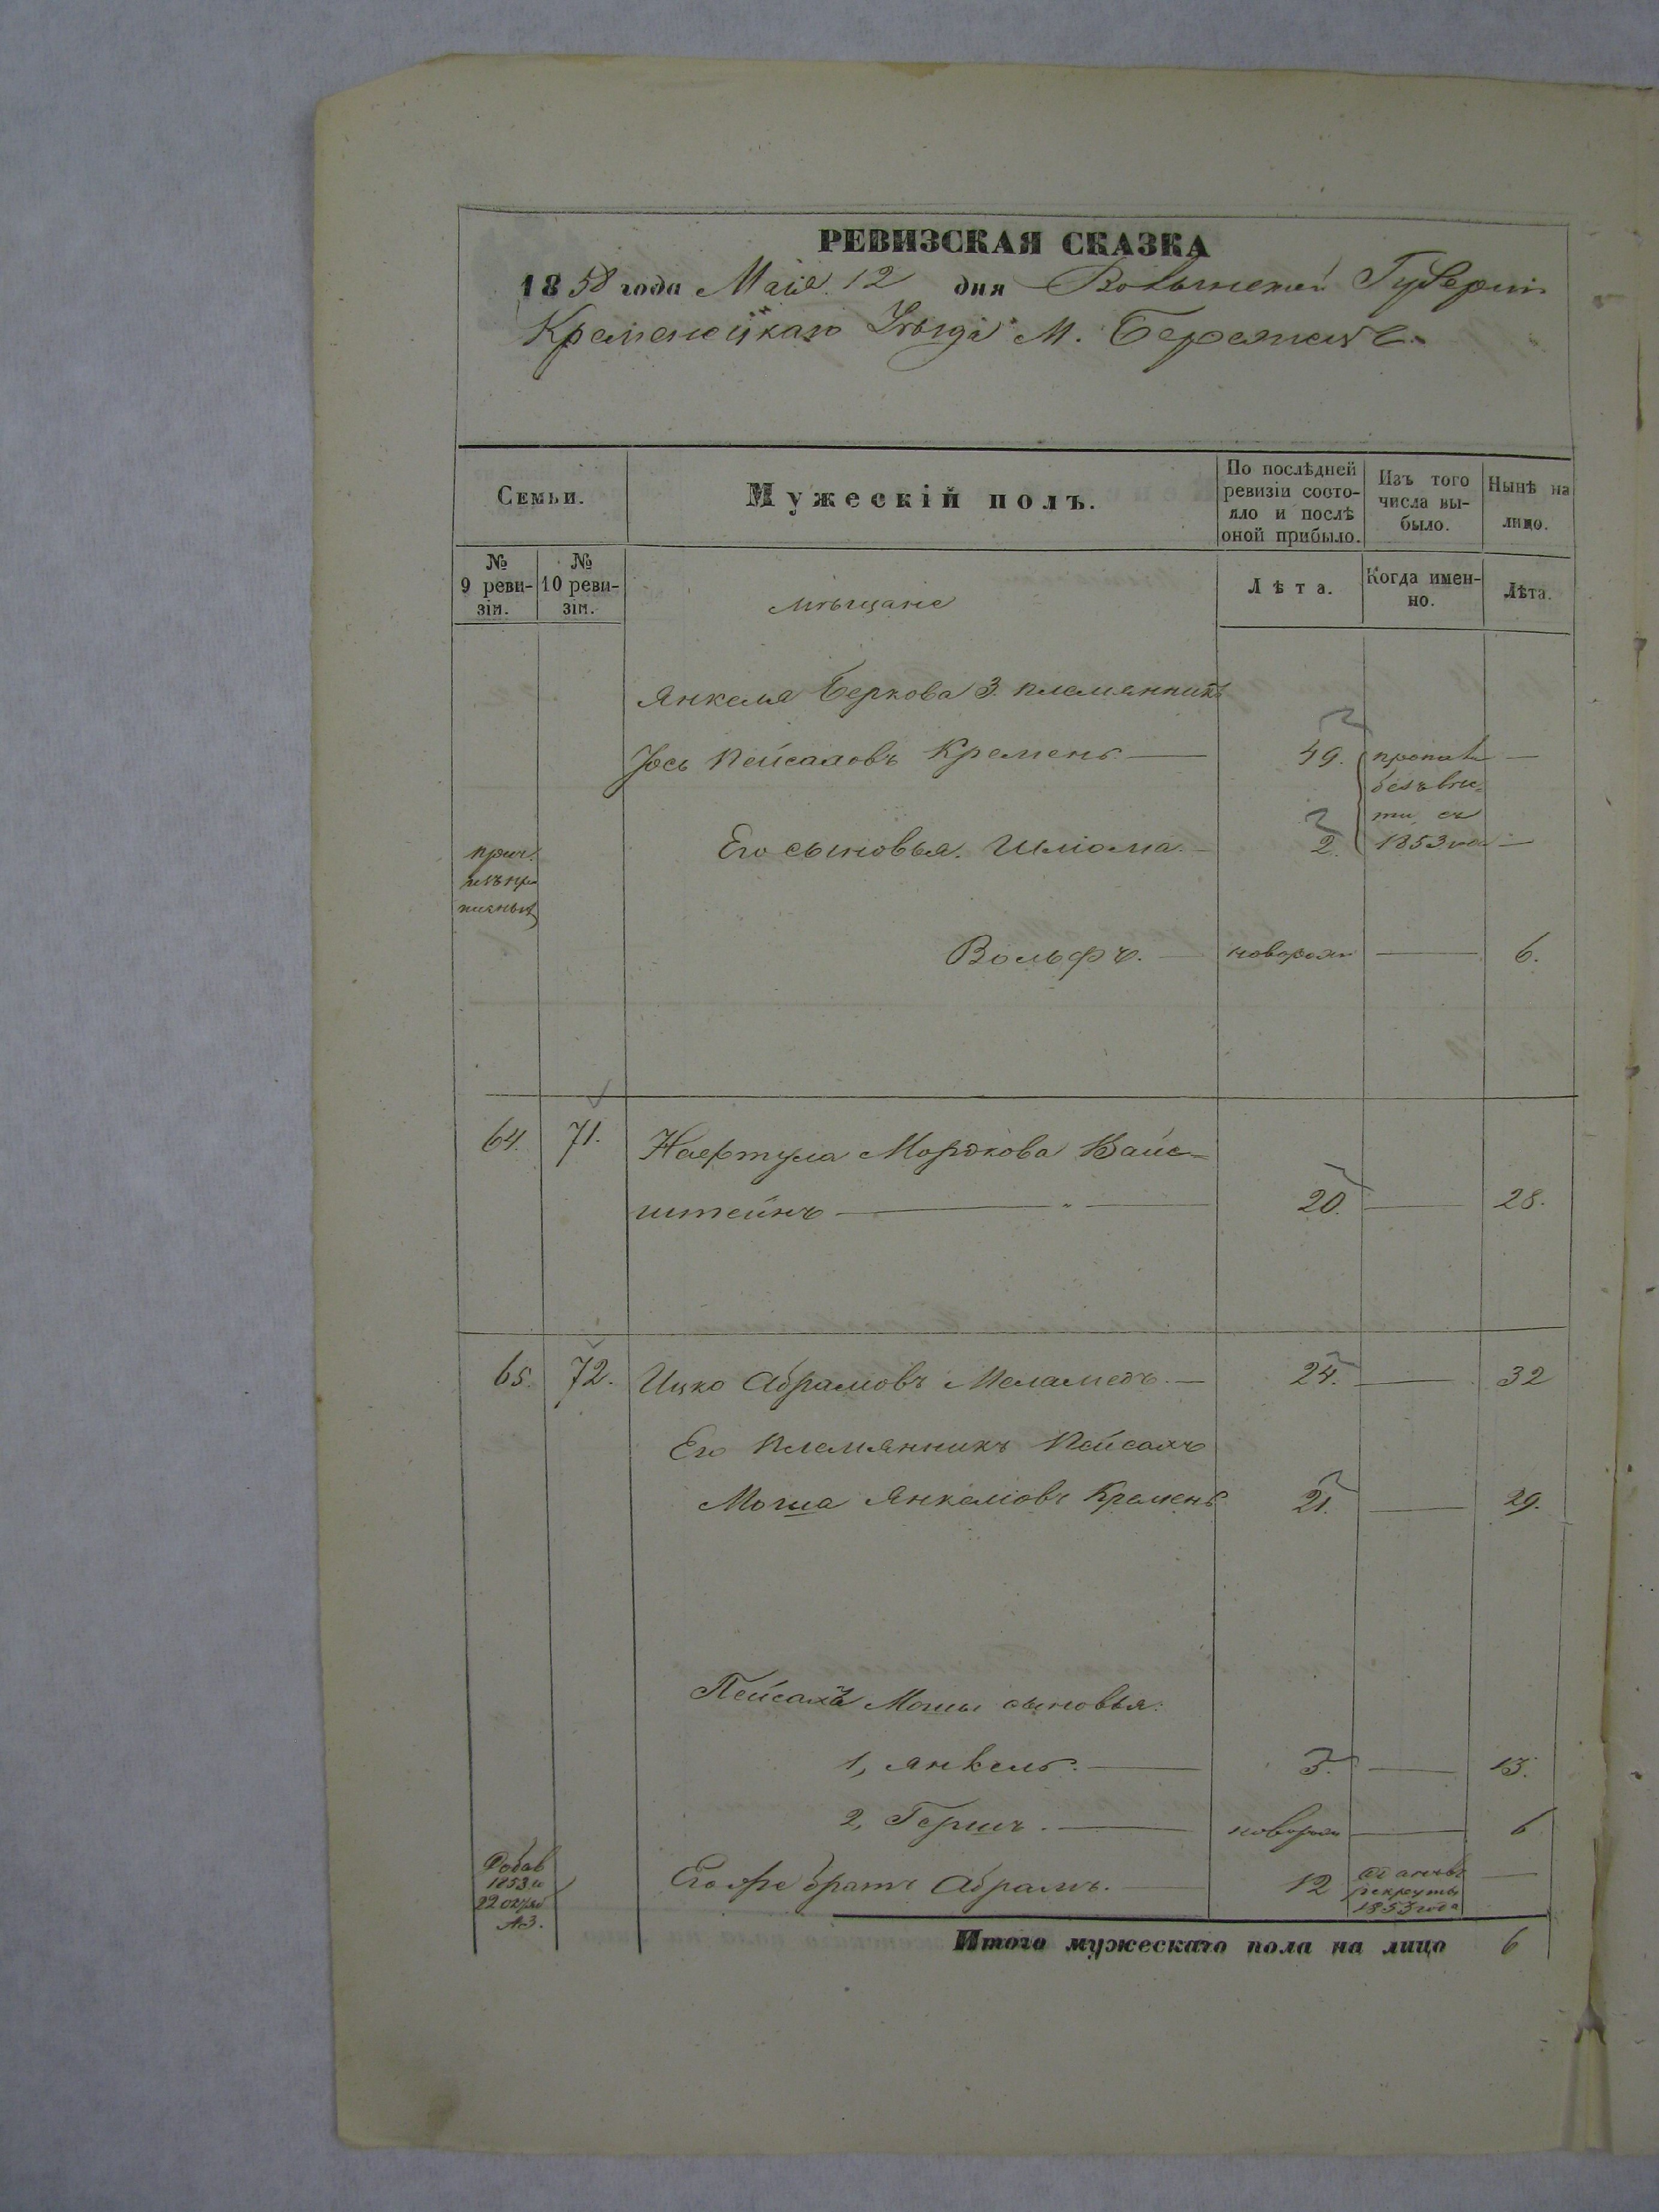 РЕВИЗСКАЯ СКАЗКА
1858 года Маія 12 дня Волынской Губерніи
Кременецкаго Уѣзда М. Бережецъ
Семьи.
Мужескій полъ.
По послѣдней ревизіи состо-
яло и послѣ оной прибыло.
Изъ того числа вы-
было.
Нынѣ на лицо.
№ 9 реви-
зіи.
№ 10 реви-
зіи.
мѣщане
Лѣта.
Когда имен-
но.
Лѣта.
Янкеля Беркова 3. племянникъ
Іось Пейсаховъ Кремень — 49. пропалъ —
безъ вѣс-
ти съ
Его сыновья. Шліома. — 2. 1853 —
Вольфъ. — новорож — 6.
64. 71. Нафтула Моркова Вайс=
штейнъ — 20. — 28.
65. 72. Ицко Абрамовъ Меламедъ. — 24. — 32
Его Племянникъ Пейсахъ
Мошка Янкеліовъ Кремень 21. — 29.
Пейсаха Мошы сыновья:
1, Янкель. — 3. — 13.
2, Гершъ. — новорож — 6
Добав
1853
22
Его же братъ Абрамъ. — 12 —
рекруты
1853 года
Итого мужескаго пола на лицо 6